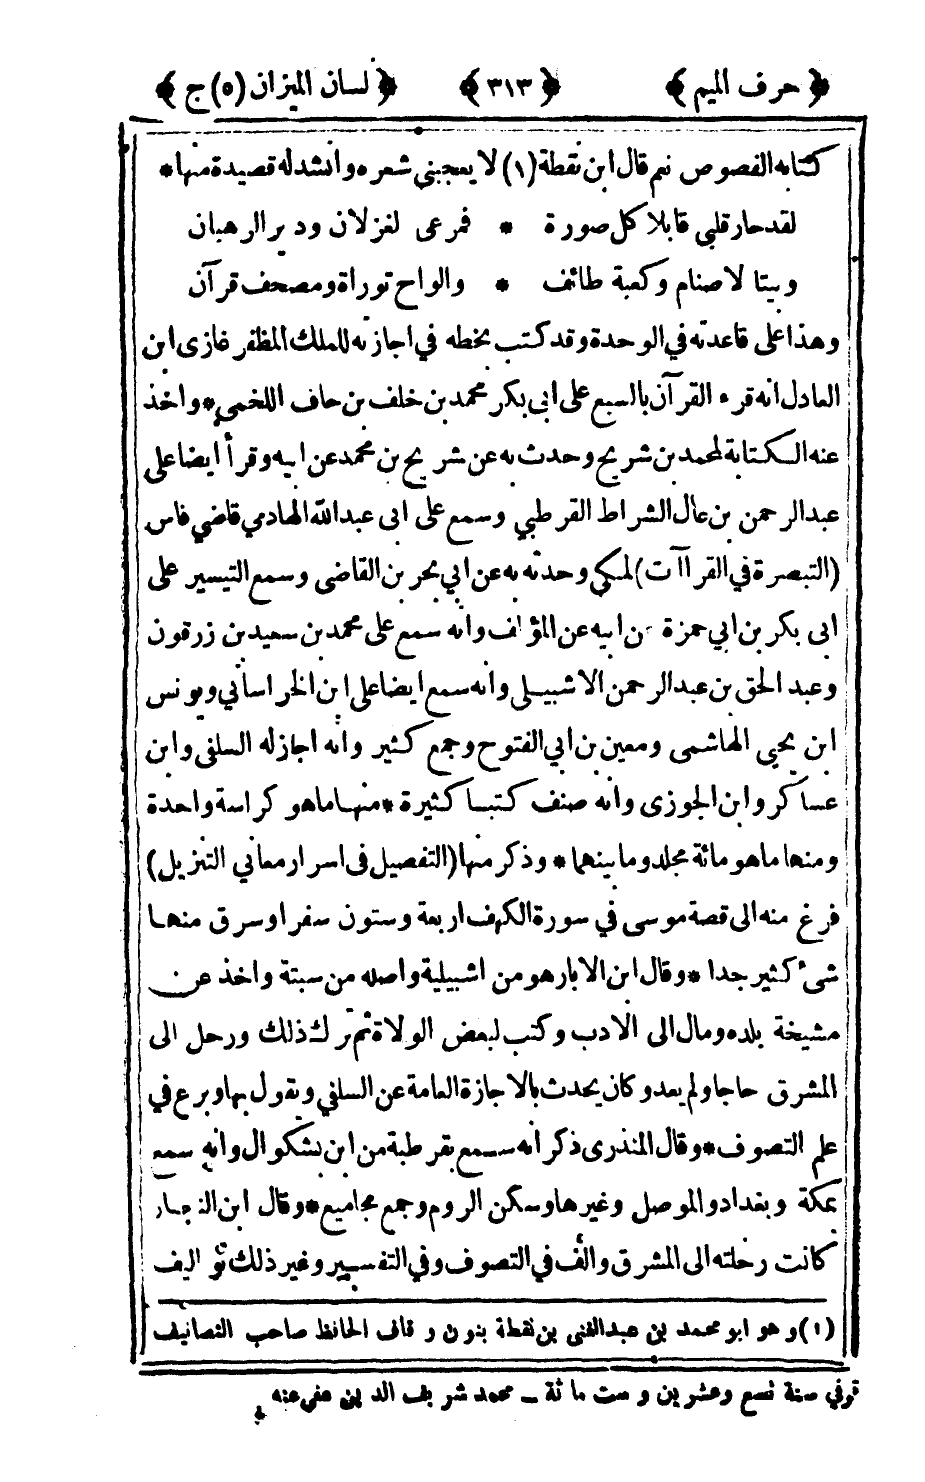 ﴿ حرف الميم ﴾ ﴿ ٣١٣ ﴾ ﴿ لسان الميزان (٥) ج ﴾
كتابه الفصوص نم قال ابن نقطة (١) لا يعجبني شعره وانشد له قصيدة منها *
لقد حار قلبي قابلا كل صورة * فمرعى لغزلان ودير الرهبان
وبيتا لاصنام وكعبة طائف * والواح توراة ومصحف قرآن
وهذا على قاعدته في الوحدة وقد كتب بخطه في اجازته للملك المظفر غازى ابن
العادل انه قرء القرآن بالسبع على ابى بكر محمد بن خلف بن حاف اللخمي * واخذ
عنه الكتابة لمحمد بن شريح وحدث به عن شريح بن محمد عن ابيه وقرأ ايضا على
عبد الرحمن بن عال الشراط القرطبي وسمع على ابى عبد الله الهادمي قاضي فاس
(التبصرة في القراآت) لمكي وحدثه به عن ابي بحر بن القاضى وسمع التيسير على
ابى بكر بن ابي حمزة عن ابيه عن المؤلف وانه سمع على محمد بن سعيد بن زرقون
وعبد الحق بن عبد الرحمن الاشبيلى وانه سمع ايضا على ابن الخراساني ويونس
ابن يحيى الهاشمى ومعين بن ابي الفتوح وجمع كثير وانه اجاز له السلفى وابن
عساكر وابن الجوزى وانه صنف كتبا كثيرة * منها ماهو كراسة واحدة
ومنها ماهو مائة مجلد وما بينهما * وذكر منها (التفصيل فى اسرار معاني التنزيل)
فرغ منه الى قصة موسى في سورة الكهف اربعة وستون سفرا وسرق منها
شئ كثير جدا * وقال ابن الابار هو من اشبيلية واصله من سبتة واخذ عن
مشيخة بلده ومال الى الادب وكتب لبعض الولاة ثم ترك ذلك ورحل الى
المشرق حاجا ولم يعد وكان يحدث بالاجازة العامة عن السلفي ويقول بها وبرع في
علم التصوف * وقال المنذرى ذكر انه سمع بقرطبة من ابن بشكوال وانه سمع
بمكة وبغداد والموصل وغيرها وسكن الروم وجمع مجاميع * وقال ابن النجار
كانت رحلته الى المشرق والف في التصوف وفي التفسير وغير ذلك تواليف
(١) وهو ابو محمد بن عبد الغنى بن نقطة بنون وقاف الحافظ صاحب التصانيف
توفي سنة تسع وعشرين وست مائة ــ محمد شريف الدين عفي عنه